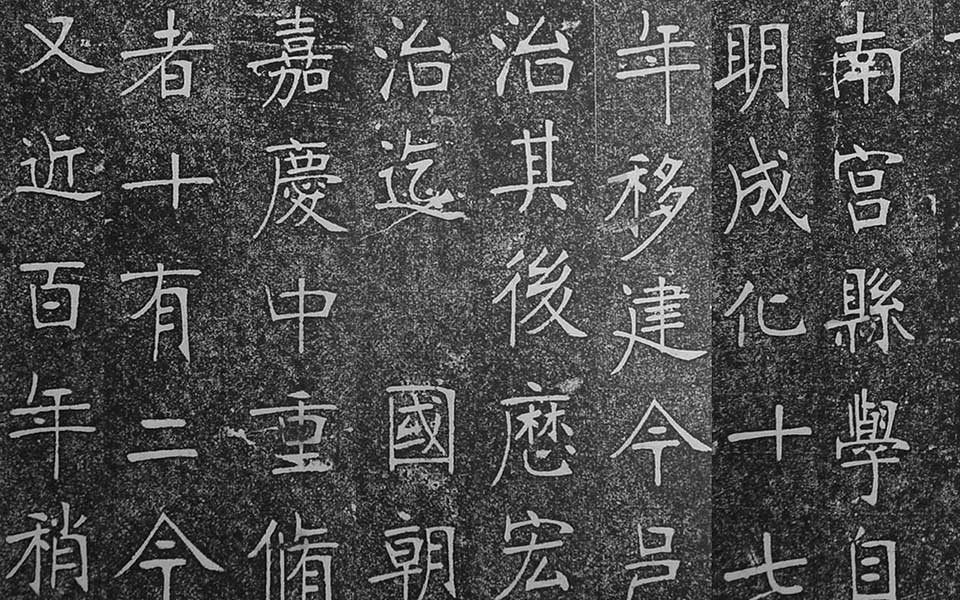 南宫縣學自
明成化十七
年移建今邑
治其後歷宏
治迄 國朝
嘉慶中重脩
者十有二今
又近百年稍